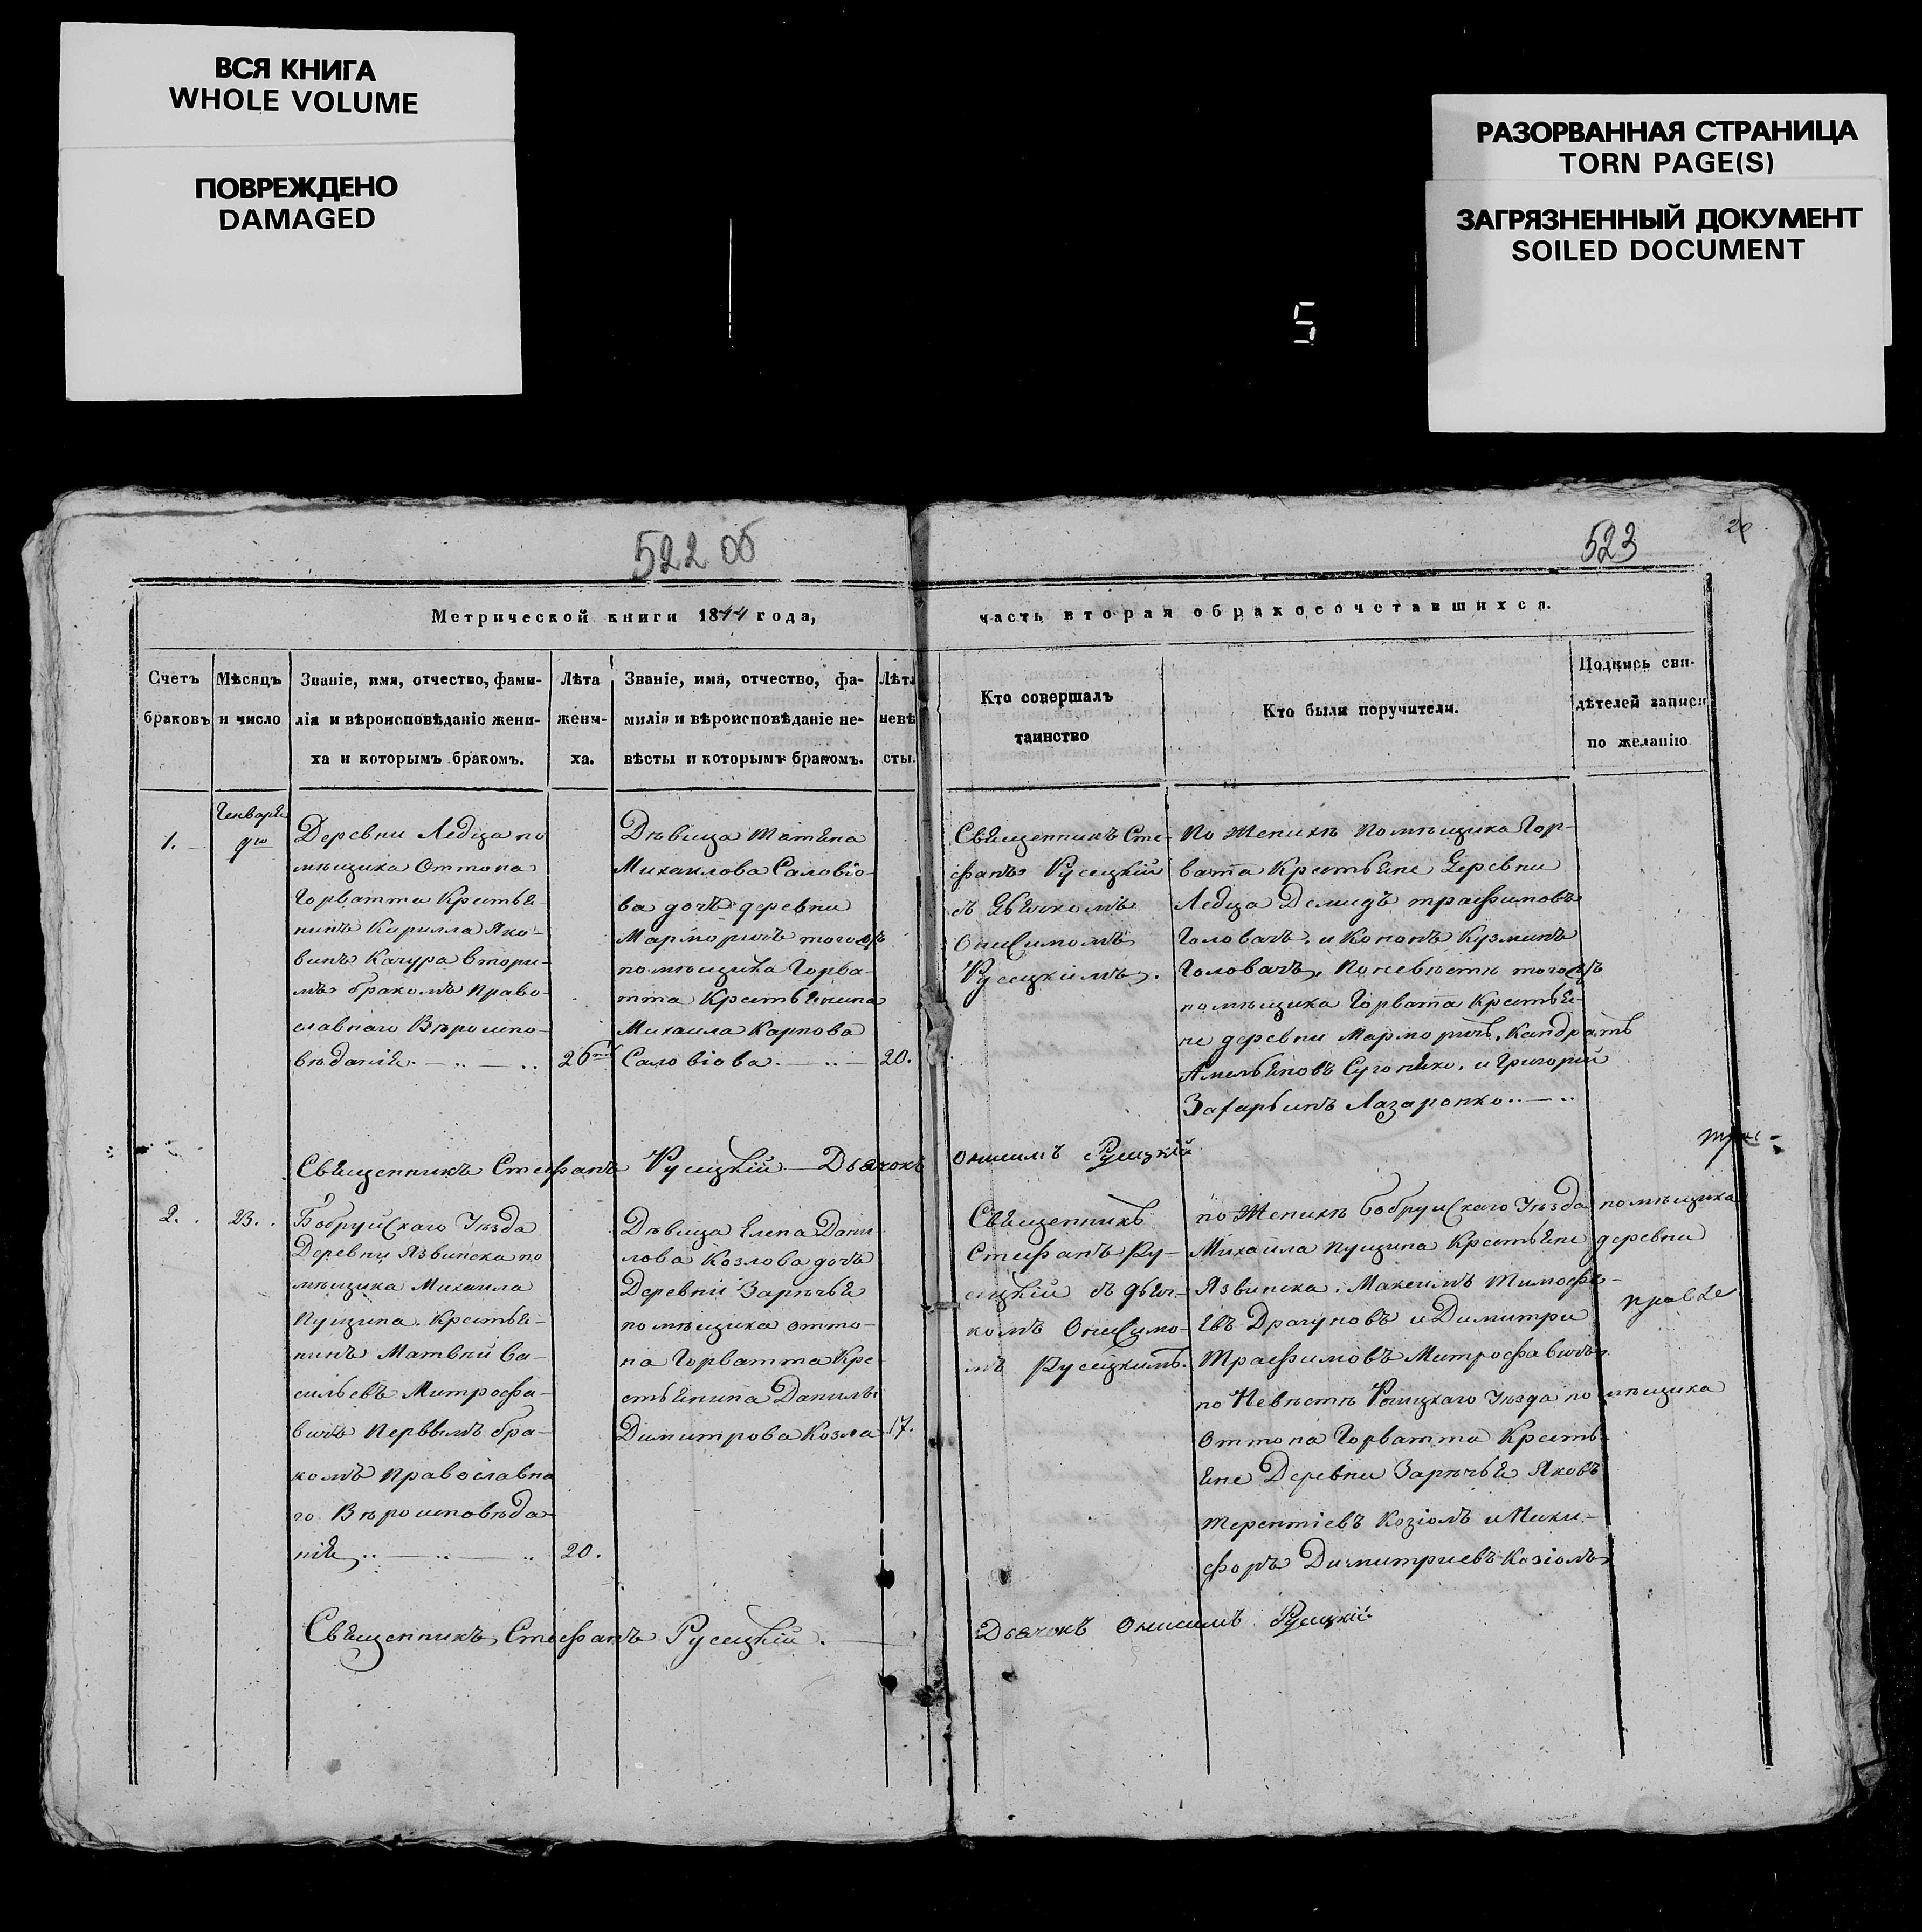 ВСЯ КНИГА
WHOLE VOLUME
ПОВРЕЖДЕНО
DAMAGED
РАЗОРВАННАЯ СТРАНИЦА
TORN PAGE(S)
ЗАГРЯЗНЕННЫЙ ДОКУМЕНТ
SOILED DOCUMENT
5
522 об
523
Метрической книги 1844 года,
часть вторая о бракосочетавшихся.
Счетъ
браковъ
Мѣсяцъ
и число
Званіе, имя, отчество, фами-
лія и вѣроисповѣданіе жени-
ха и которымъ бракомъ.
Лѣта
жени-
ха.
Званіе, имя, отчество, фа-
милія и вѣроисповѣданіе не-
вѣсты и которымъ бракомъ.
Лѣта
невѣ
сты.
Кто совершалъ
таинство
Кто были поручители.
Подпись сви-
дѣтелей записи
по желанію
1.
Генваря
9го
Деревни Ледца по
мѣщика Оттона
Горватта Крестья
нинъ Кирилла Яко-
винъ Качура втори-
мъ бракомъ право-
славнаго Вѣроиспо-
вѣданія.
26
Дѣвица Татяна
Михаилова Саловіо-
ва дочъ деревни
Мармовичъ тогожъ
помѣщика Горва-
тта Крестьянина
Михаила Карпова
Саловіова.
20.
Священникъ Сте-
фанъ Русецкій
съ Дьячкомъ
Онисимомъ
Русецкимъ.
По женихѣ помѣщика Гор-
ватта Крестьяне Деревни
Ледца Демидъ Трафимовъ
Головачъ, и Кононъ Кузминъ
Головачъ, По невѣстѣ тогожъ
помѣщика Горвата Крестья-
не деревни Мармовичъ, Кандратъ
Амельяновъ и Григорій
Захарьинъ Лазаренко
Священникъ Стефанъ Русецкій Дьячокъ Онисимъ Русецкій
2.
23.
Бобруйскаго Уѣзда
Деревни Язвинска по
мѣщика Михаила
Пущина Крестья-
нинъ Матвѣй Ва-
сильевъ Митрофа-
вичъ Перввимъ бра-
комъ православна
го Вѣроисповѣда-
нія
20.
Дѣвица Елена Дани-
лова Козлова дочъ
Деревни Зарѣчья
помѣщика Отто-
на Горватта Кре
стьянина Данилы
Димитрова Козла
17.
Священникъ
Стефанъ Ру-
сецкій съ дьяч-
комъ Онисимо-
мъ Русецкимъ.
по Женихѣ Бобруйскаго Уѣзда помѣщика
Михаила Пущина Крестьяне деревни
Язвинска. Максимъ Тимофе-
евъ Драгуновъ и Димитри
Трафимовъ Митрофавичъ
по Невѣстѣ Рѣчицкаго Уѣзда помѣщика
Оттона Горватта Крестья-
яне Деревни Зарѣчья Яковъ
Терентіевъ Козіолъ и Ники-
форъ Димитриевъ Козіолъ
Священникъ Стефанъ Русецкій.
Дьячокъ Онисимъ Русецкій